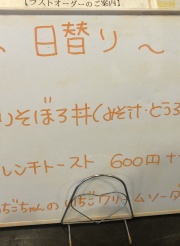 【ラストオーダーのご案内】
、日替り〜
りそぼろ丼(みそ汁・とうふ
レンチトースト 600円+
ちごちゃんの いちごクリームソーダ